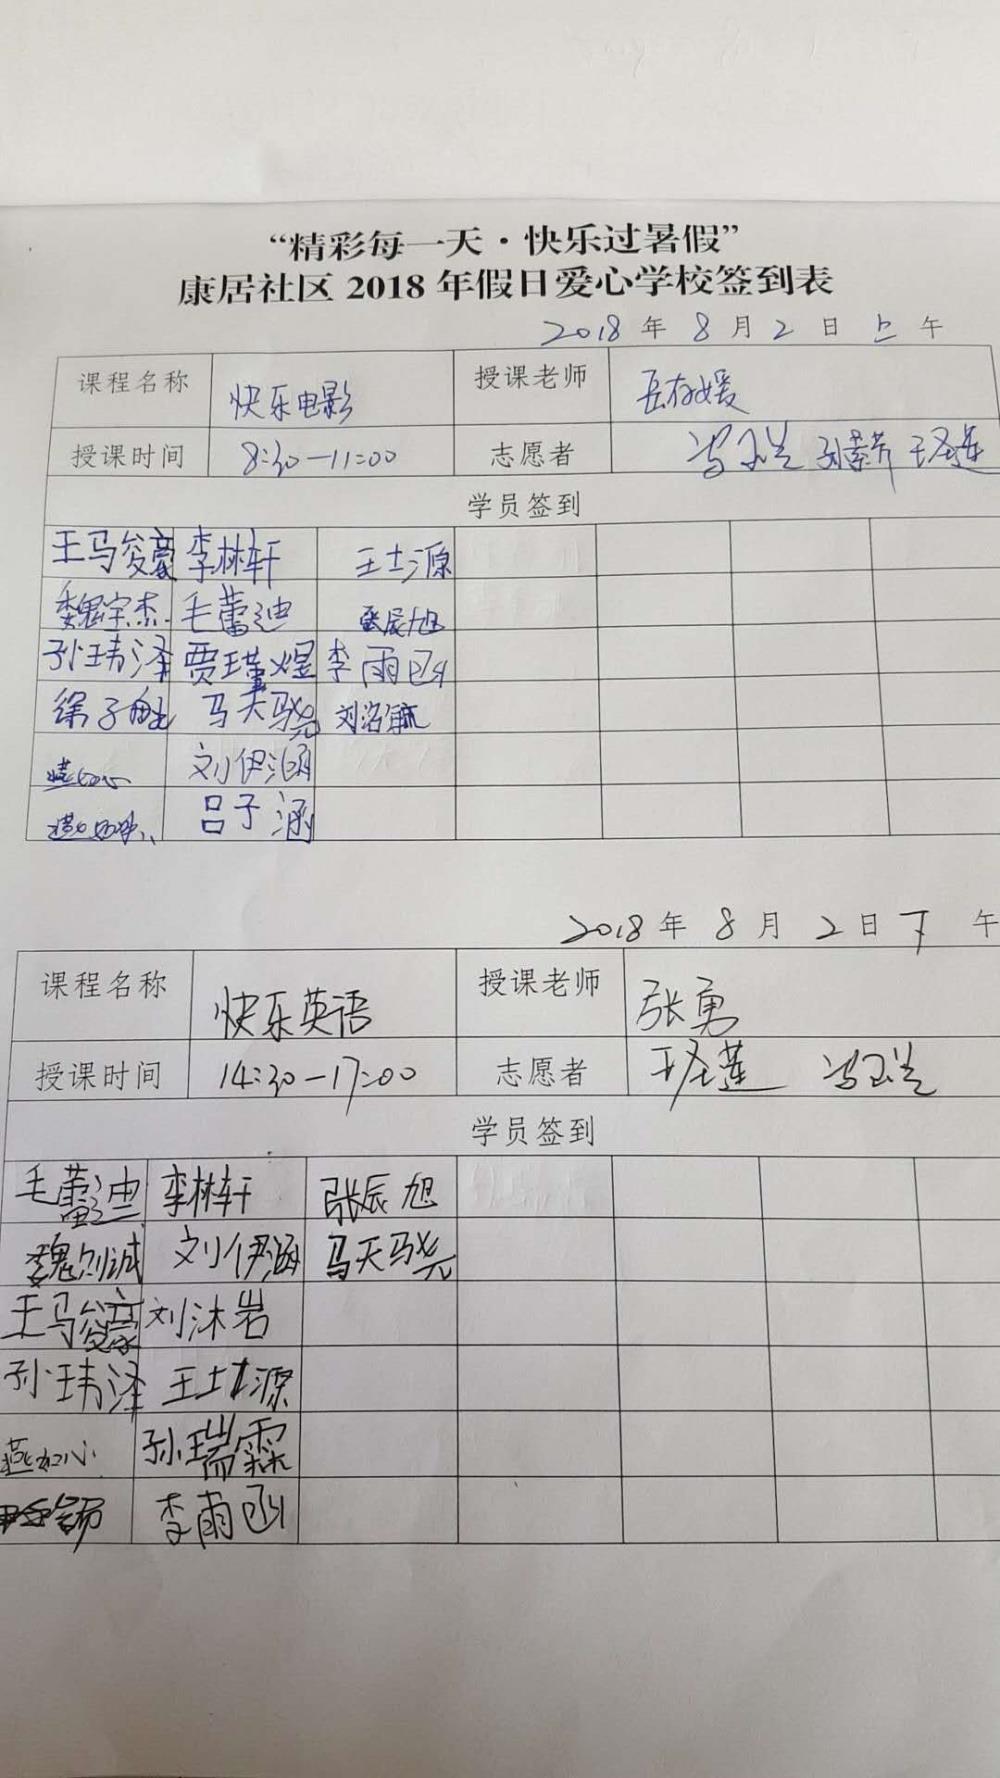 “精彩每一天·快乐过暑假”
康居社区 2018 年假日爱心学校签到表
2018 年 8 月 2 日 上 午
课程名称 快乐电影 授课老师
授课时间 8:30—11:00 志愿者
学员签到
王马俊豪 李林轩 王士源
魏宗杰 毛蕾迪 张辰旭
孙玮泽 贾瑾煜 李雨函
徐子 马天骁 刘洺毓
刘伊涵
吕子涵
2018 年 8 月 2 日 下 午
课程名称 快乐英语 授课老师 张勇
授课时间 14:30—17:00 志愿者 王圣莲 冯玉兰
学员签到
毛蕾迪 李林轩 张辰旭
魏刘诚 刘伊涵 马天骁
王马俊豪 刘沐岩
孙玮泽 王士源
燕如心 孙瑞霖
李雨函